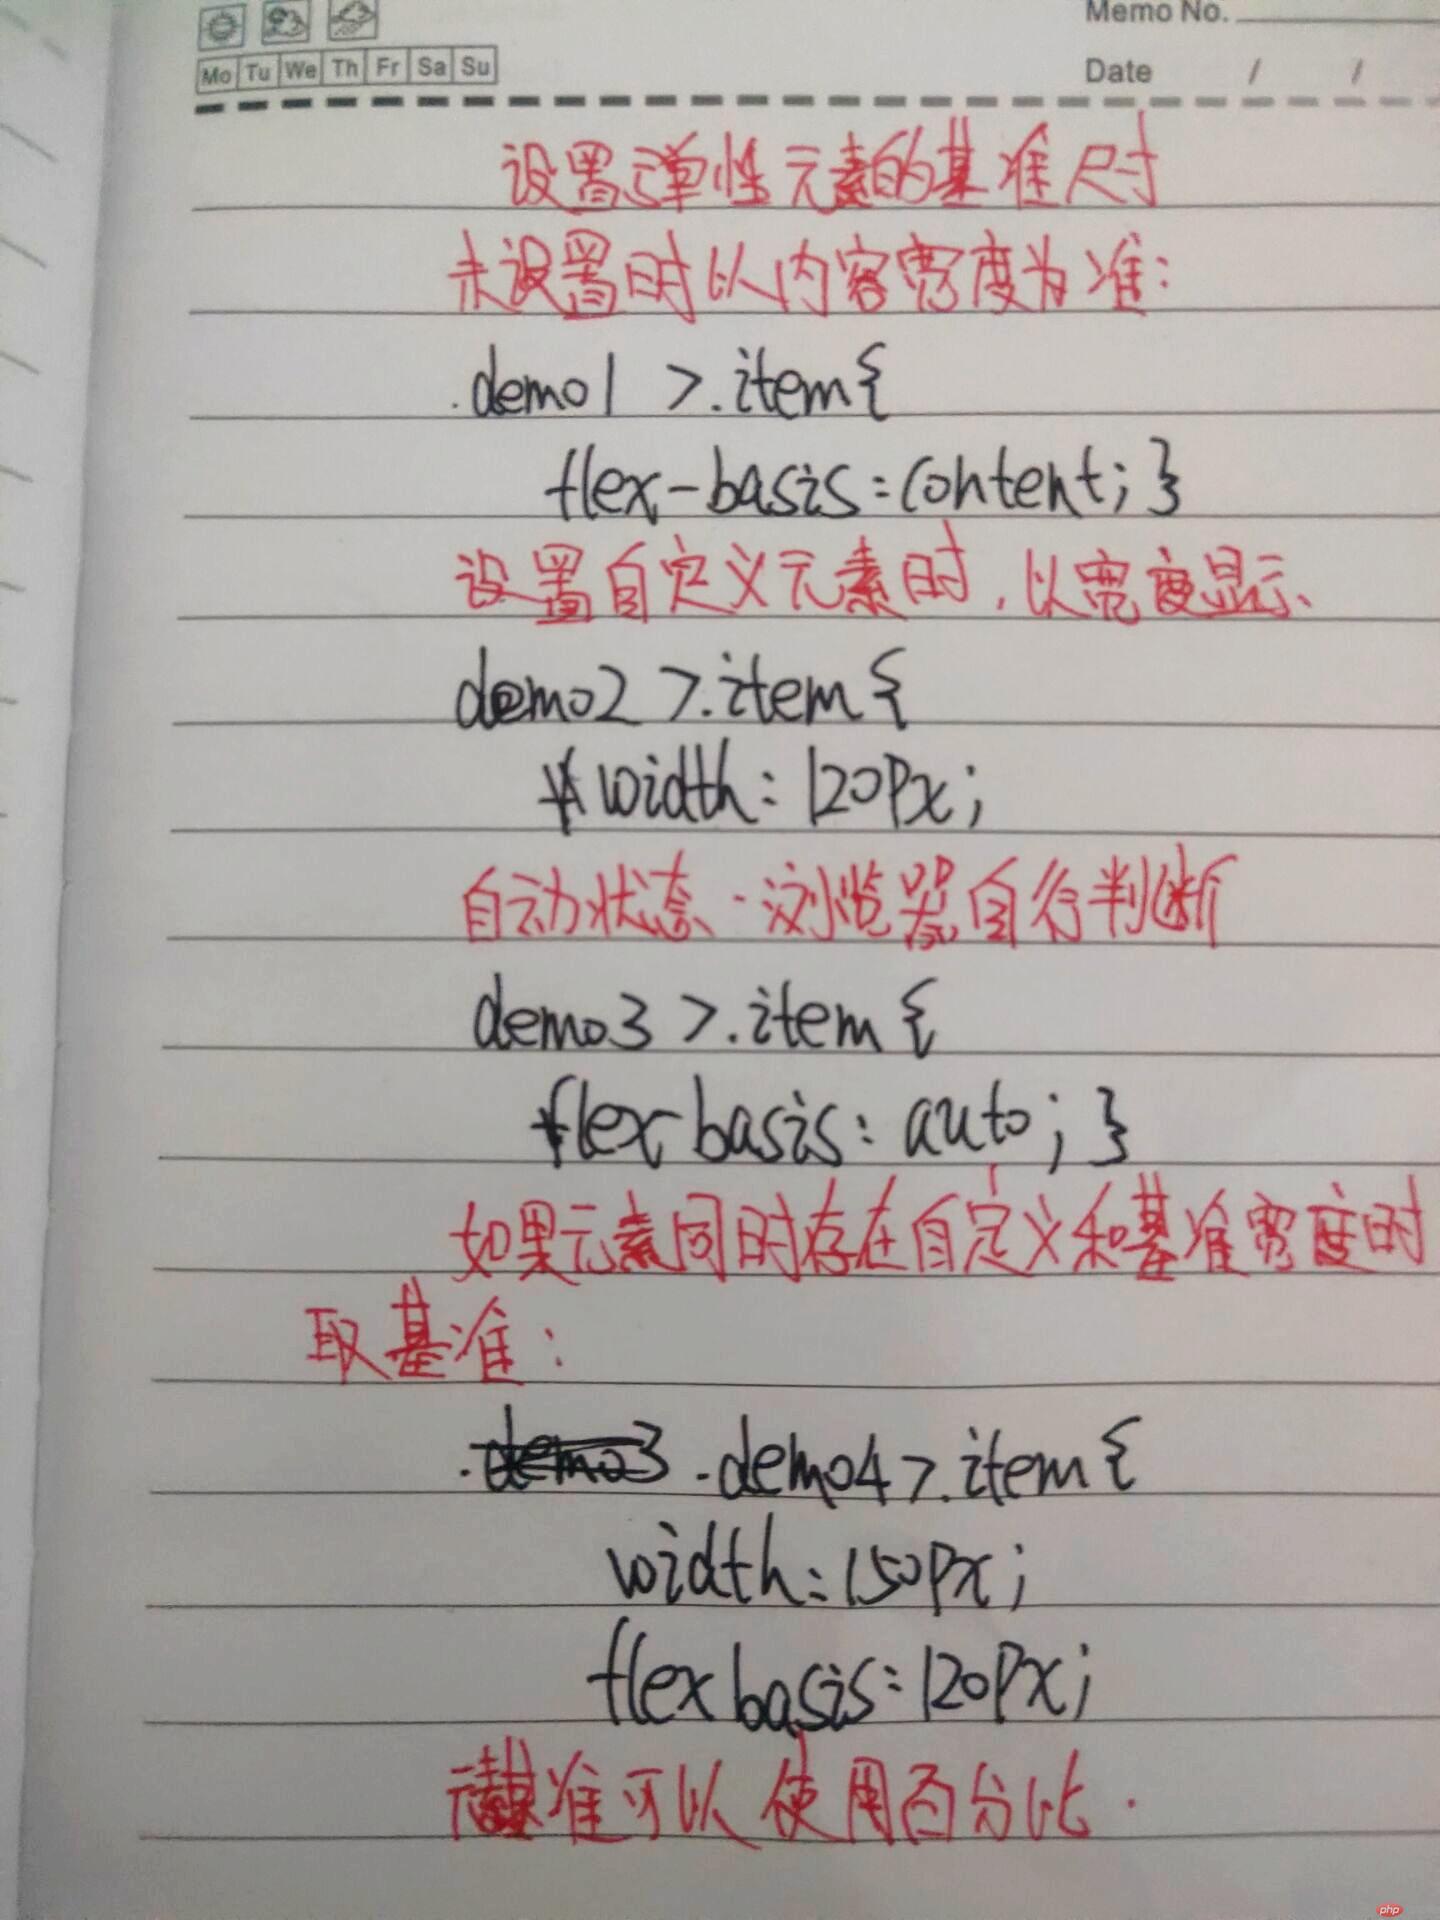 Memo No.
Mo Tu We Th Fr Sa Su
Date / /
设置弹性元素的基准尺寸
未设置时以内容宽度为准:
.demo1 >.item{
flex-basis:content;}
设置自定义元素时,以宽度显示、
demo2 >.item{
width:120px;
自动状态.浏览器自行判断
demo3 >.item{
flex basis: auto;}
如果元素同时存在自定义和基准宽度时
取基准:
.demo3 .demo4>.item{
width:150px;
flex basis:120px;
元素基准可以使用百分比.
php